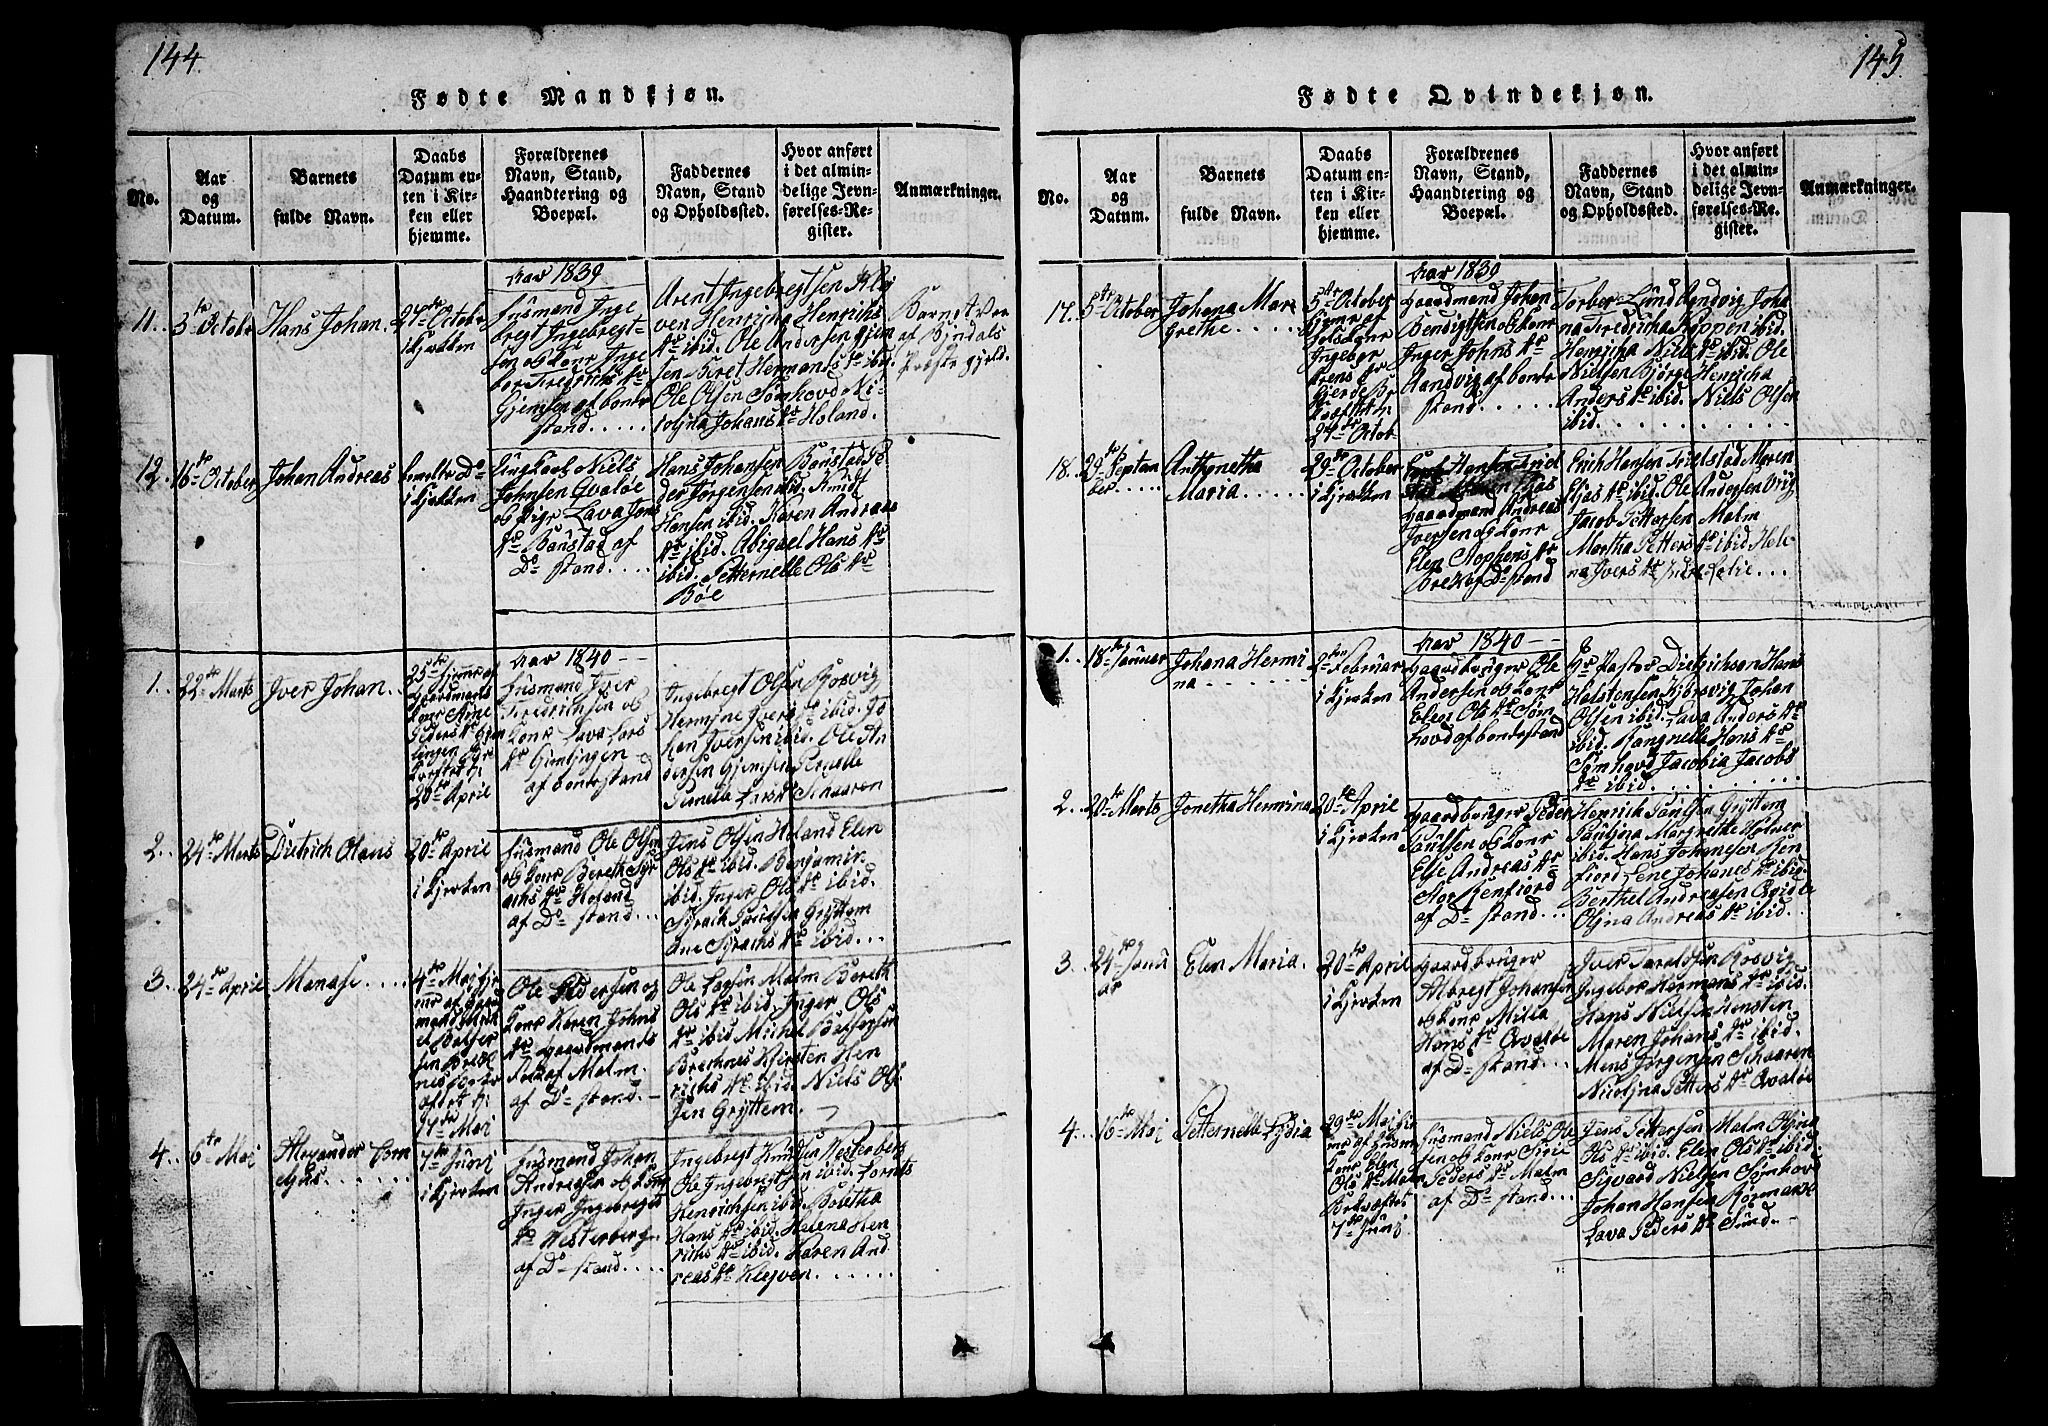 144.
Fødte Mandkjøn.
No.
Aar
og
Datum.
Barnets
fulde Navn.
Daabs
Datum en-
ten i Kir-
ken eller
hjemme.
Forældrenes
Navn, Stand,
Haandtering og
Boepæl.
Faddernes
Navn, Stand
og Opholdssted.
Hvor anført
i det almin-
delige Jevn-
førelses-Re-
gister.
Anmærkninger.
Aar 1839
11.
3die Octobr
Hans Johan.
27de Octobr
i Kjærken
Huusmand Inge
bregt Ingebregt-
sen og Kone Inge
bor Fredrichs dr
Gjemsen af bonde
stand.....
Arent Ingebregtsen Kley
ven Henricha Henrichs
dr ibid. Ole Andersen Gjem
sen Beret Hermans dr ibid.
Ole Olsen Sømhovd Ni-
colina Johans dr Holand.
Barnet Var
af Bindals
Præstegjeld.
12.
16de October
Johan Andreas
bemelte Do
i Kjærken
Ungkarl Niels
Johnsen Qvaløe
og Pige Lava Jens
dr Baustad af
Do stand....
Hans Johansen Baustad Pe
der Jørgensen ibid. Knudt
Hansen ibid. Karen Andreas
dr ibid. Abigael Hans dr
ibid. Petternelle Ols dr
Bøe
Aar 1840 --
1.
22de Marts
Iver Johan..
25de hjemme af
Gaardmands
Kone Ane
Peders dr Gim
lingen
20de April
Huusmand Peder
Fredrichsen og
Kone Lava Lars
dr Gimlingen
af bondestand
Ingebregt Olsen Rosvig
Hermine Ivers dr ibid. Jo
han Iversen ibid. Ole An
dersen Gjemsen Pernelle
Pernella Lars dr Schaaren
2..
24de Marts
Dietrich Olaus
20de April
i Kjærken
Huusmand Ole Olsen
og Kone Bereth Syr
achs dr Holand
af Do stand...
Jens Olsen Holand Elen
Ols dr ibid. Benjamin
ibid. Inger Ols dr ibid.
Syrach Paulsen Gryttem
Ane Syrachs dr ibid...
3..
24de April
Manase.....
4de Maj hje
me af Gaard
mand Mich
el Batser
sen Brek
nes
17de Maj
Ole Pedersen og
Kone Karen Johns
dr Gaardmands
folk af Malm.
af Do stand.-
Ole Larsen Malm Bereth
Ols dr ibid. Inger Ols
dr ibid Michel Batsersen
Breknes Kirsten Hen
richs dr ibid. Niels Ol-
sen Gryttem.
4..
6te Maj
Alexander Corn
elius.......
7de Junj
i Kjærken
Huusmand Johan
Andreasen og Kone
Inger Ingebregts
dr Westerberg.
af Do stand....
Ingebregt Knudsen Westerberg
Ole Ingebregtsen ibid. Cornels
Henrichsen ibid. Beretha
Hans dr ibid. Helena Hen
richs dr ibid. Karen And
reas dr Kleyven.......
145.
Fødte Qvindekjøn.
No.
Aar
og
Datum.
Barnets
fulde Navn.
Daabs
Datum en-
ten i Kir-
ken eller
hjemme.
Forældrenes
Navn, Stand,
Haandtering og
Boepæl.
Faddernes
Navn, Stand
og Opholdssted.
Hvor anført
i det almin-
delige Jevn-
førelses-Re-
gister.
Anmærkninger.
Aar 1839
17.
5te October
Johana Mar
grethe.....
5te October
hjeme af
Ingebor
Arens dr
27de Octob
Gaardmand Johan
Bendigtsen og Kone
Inger Johns dr
Aandvig af bonde
stand.....
Torber Lund Aandvig Joha
na Fredricha Koppen ibid.
Henrina Niels dr ibid. Ole
Nielsen Bjørge Henricha
Anders dr ibid. Niels Olsen
ibid.
18.
29de Septem
ber.....
Anthonetha
Maria......
29de October
i Kjærken
Gaardmand Andreas
Iversen og Kone
Elen Stephens dr
Brek af Do stand
Erich Hansen Trælstad Maren
Elias dr ibid. Ole Andersen Vrig
Jacob Pettersen Malm
Martha Petters dr ibid Hele
na Ivers dr
Aar 1840 --
1..
18de Januar
Johana Hermi
na.......
2den Februar
i Kjærken
Gaardbruger Ole
Andersen og Kone
Elen Ols dr Søm
hovd af bondestand
Hr Pastor Dietrichson Hans
Halstensen Kjørsvig Johan
Olsen ibid. Lava Anders dr
ibid. Rangnelle Hans dr
Sømhovd Jacobia Jacobs
dr ibid......
2..
20de Marts
Jonetha Hermina
20de April
i Kjærken
Gaardbruger Peder
Paulsen og Kone
Else Andreas dr
Stor Renfiord
af Do stand...
Henrich Paulsen Gryttem
Paulina Margrethe Holmer
ibid. Hans Johanesen Ren
fiord Lene Johanes dr ibid.
Berthel Andreasen Qvidle
Olina Andreas dr ibid..
3..
24de Janu
ar
Elen Maria.
20de April
i Kjærken
Gaardbruger
Albregt Johansen
og Kone Milla
Hans dr Qvaløe
af Do stand..
Iver Taraldsen Rosvig
Ingebor Hermans dr ibid.
Hans Nielsen Hensten
Maren Johans dr ibid.
Mens Jørgensen Schaaren
Nicolina Petters dr Qvaløe
4...
16de Maj
Petternelle Lydia
29de Maj hje
me af Huusm
Kone Elen
Ols dr Malm
Bekræftet
7de Junj
Huusmand Niels Ole
sen og Kone Siri
Peders dr Malm
af Do stand...
Jens Pettersen Malm Olina
Ols dr ibid. Elen Ols dr ibid.
Sivard Nielsen Sømhovd
Johan Hansen Rørmark
Lava Peders dr Sund.-